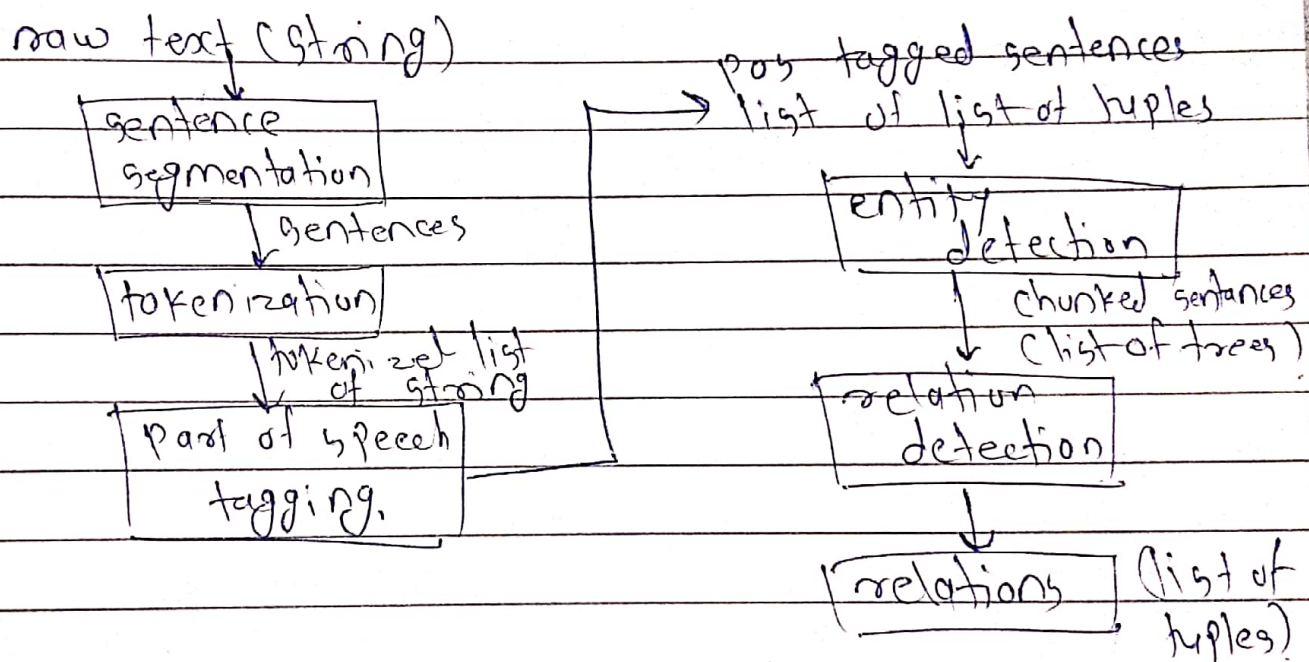 raw text (string)
sentence
segmentation
sentences
tokenization
tokenized list
of string
part of speech
tagging.
pos tagged sentences
list of list of tuples
entity
detection
chunked sentances
(list of trees)
relation
detection
relations
(list of
tuples)